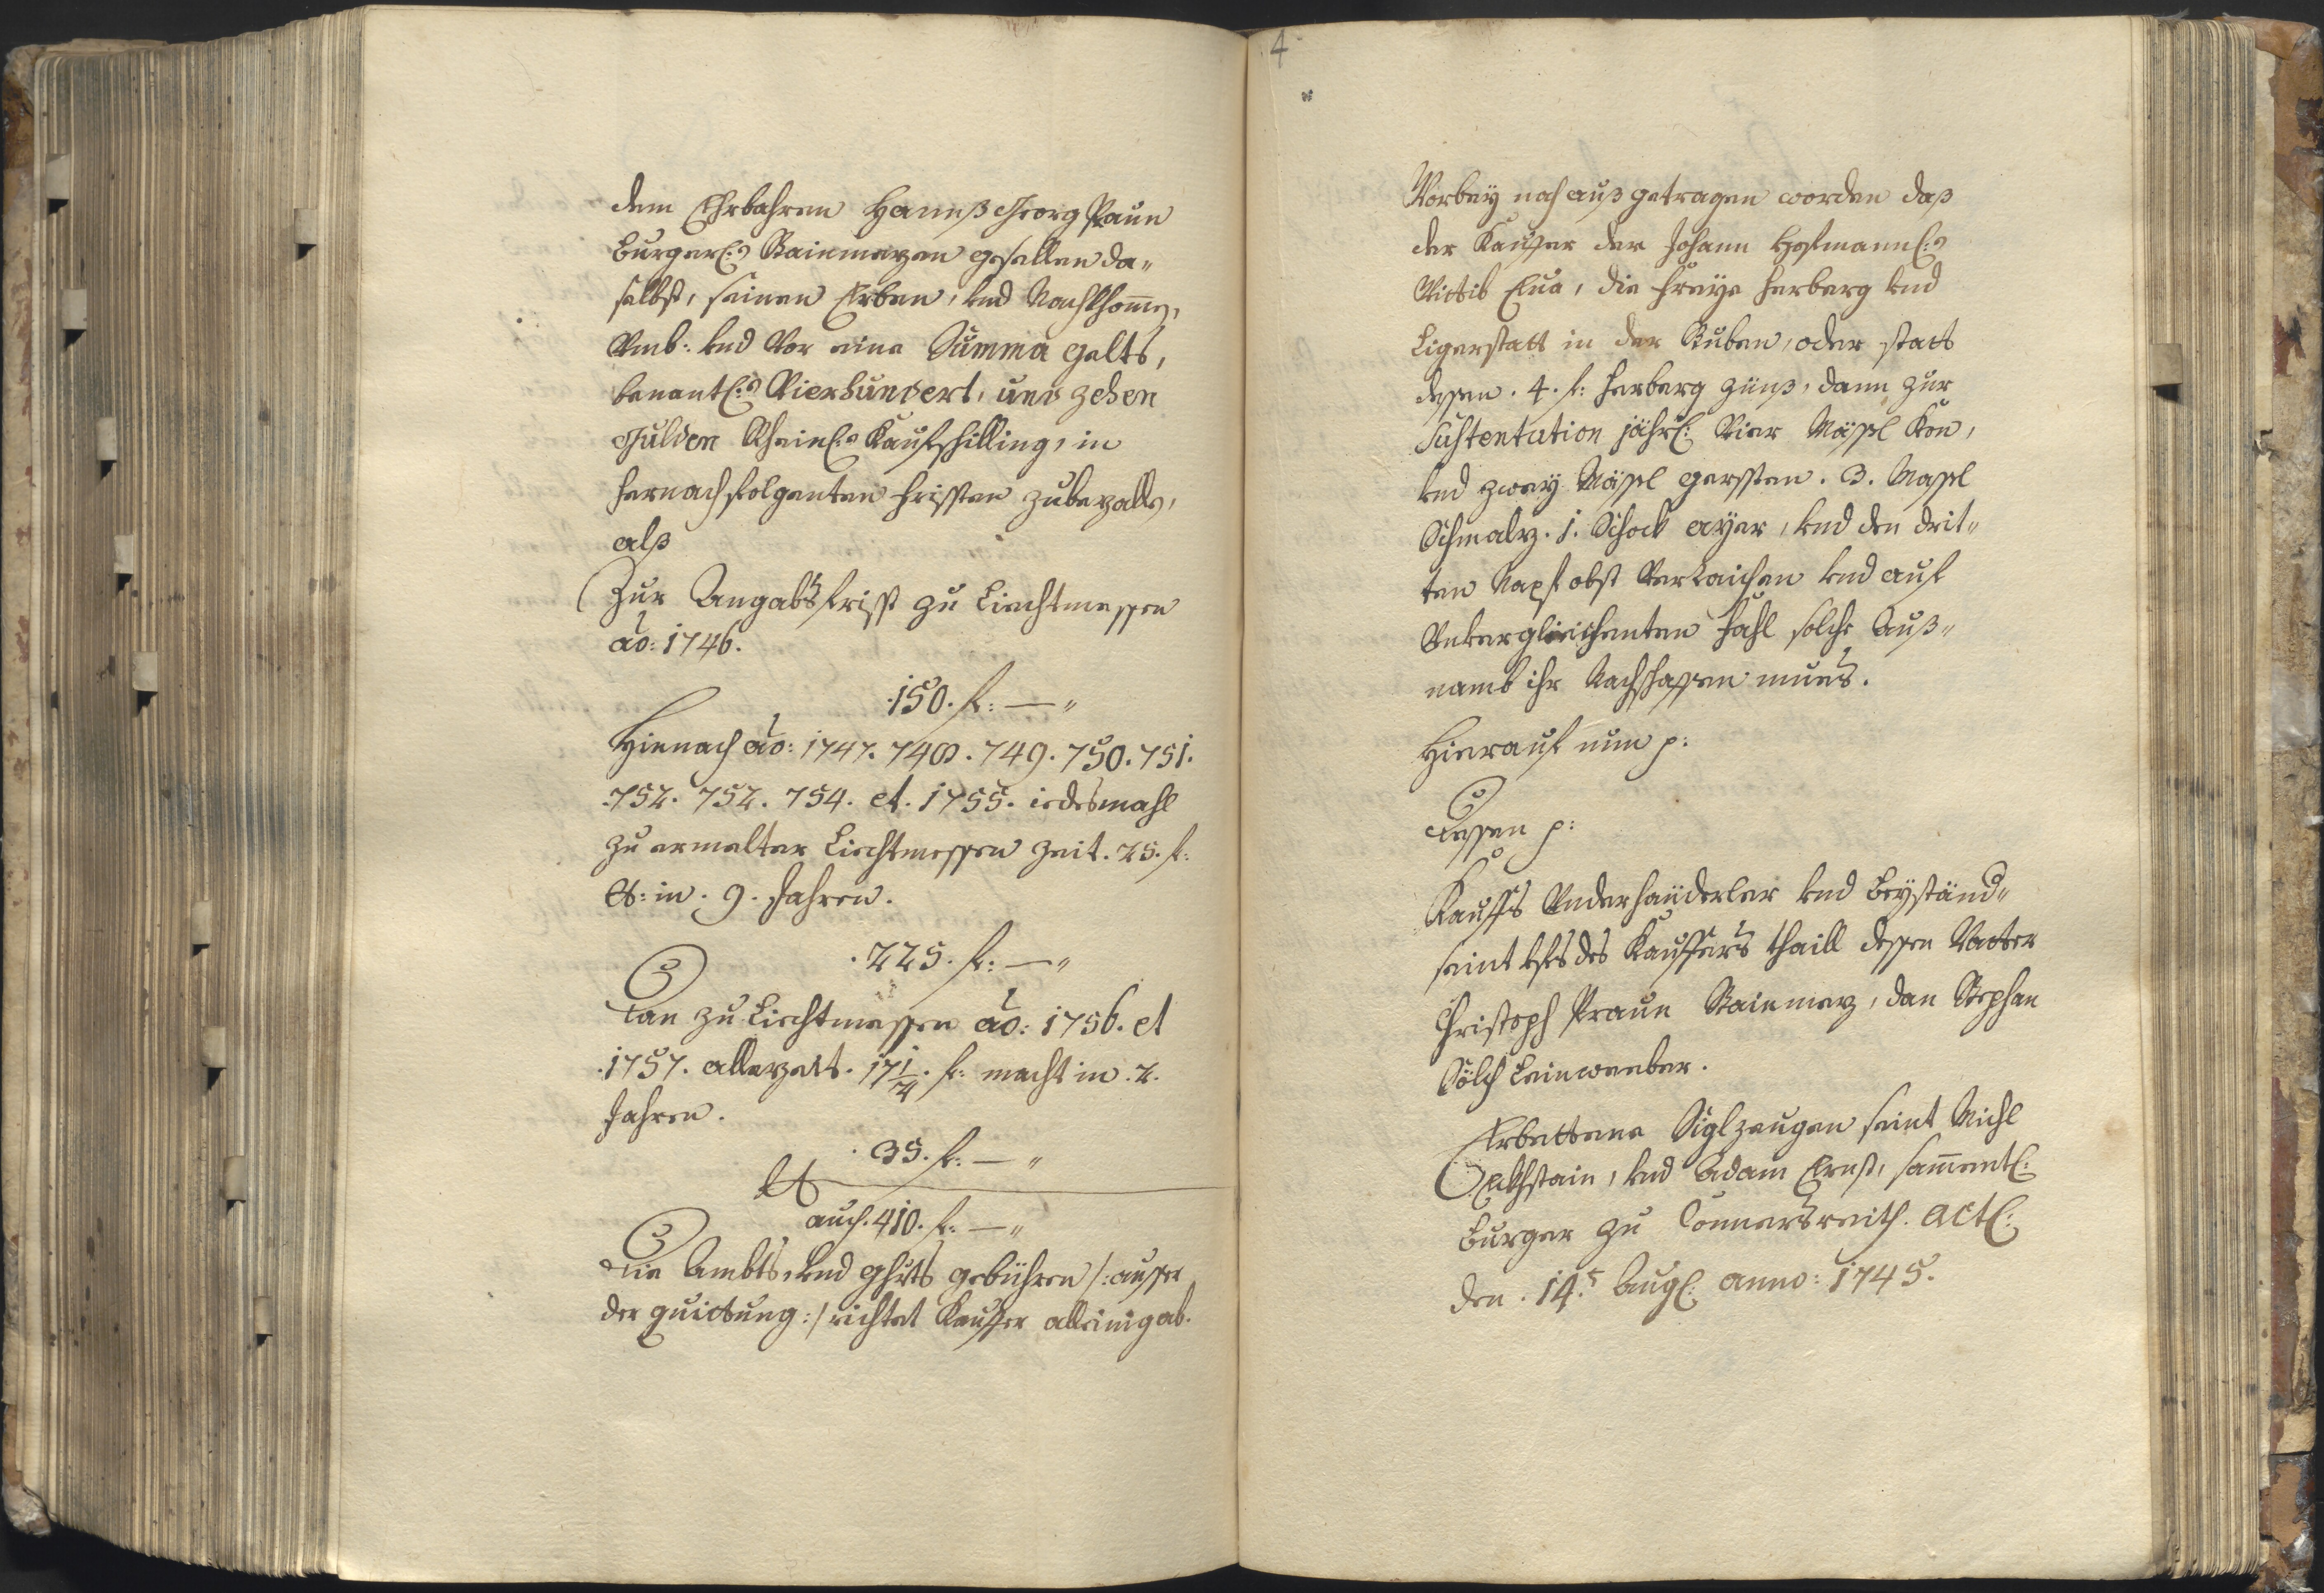 dem Ehrbahren Hannß Georg Praun
burgerl: Stainmezen gesellen da„
selbst, seinen Erben, und Nachkhomen,
Umb: und Vor eine Summa gelts,
benantl: Vierhundert, und zehen
Gulden Rheinl: Kaufschilling, in
hernachfolgenten fristen zubezallen,
alß
Zur Angabsfrist zu Liechtmessen
ao: 1746.
150. f: — „
Hienach ao: 1747. 748. 749. 750. 751.
752. 752. 754. et. 1755. iedesmahl
zu ermelter Liechtmessen zeit. 25. f:
et: in. 9. Jahren.
. 225. f: — „
Dan zu Liechtmessen ao: 1756. et
1757. allezeit. 17 1/2. f: macht in. 2.
Jahren.
. 35. f: — „
auch. 410. f: — „
Die Ambts, und ghrts gebühren /: ausser
der quittung :/ richtet Kauffer alleinig ab.
4
Vorbey noch auß getragen worden daß
der Kauffer der Johann Hofmannl:
Wittib Eva, die freye herberg und
Ligerstatt in der Stuben, oder statt
dessen. 4. f: herberg zünß, dann zur
Sustentation jährl: Vier Mässl Korn,
und zwey Mässl gersten. 3. Massl
Schmalz. 1. Schock ayer, und den drit„
ten Napf obst Verraichen und auf
Unvergleichenten fahl solche Auß„
namb ihr Nachschaffen mues.
Hierauf nun p:
Dessen p:
Kauffs Underhändtler und Beyständ„
seint des Kauffers thaill dessen Vatter
Christoph Praun Stainmez, dan Stephan
Sölch Leinweeber.
Erbettene Siglzeugen seint Michl
Eckhstain, und Adam Ernst, sammentl:
Burger zu Connersreith. Actl:
den. 14.t Augl: anno: 1745.